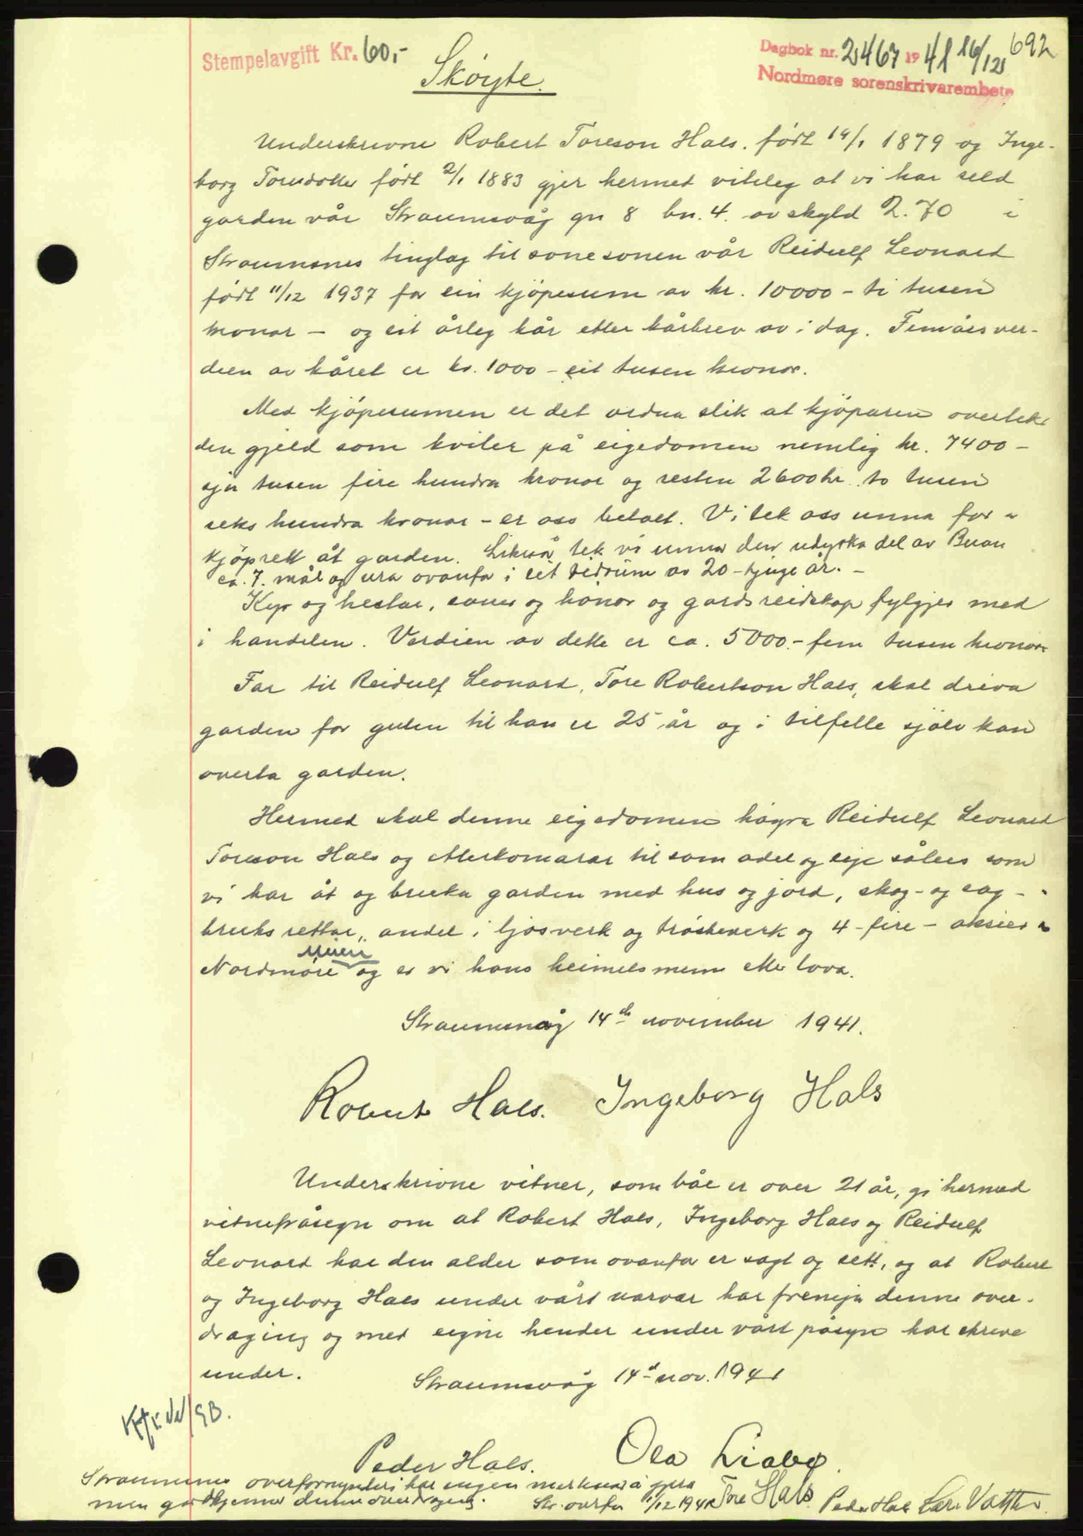 Stempelavgift Kr. 60,-
Dagbok nr. 2467 1941 16/12 692
Nordmøre sorenskrivarembete
Skøyte.
Underskrivne Robert Toreson Hals, født 14/1 1879 og Inge-
borg Toresdotter født 2/1 1883 gjer hermed viteleg at vi har seld
garden vår Straumsvåg gn 8 bn. 4. av skyld 2.70 i
Straumsnes tinglag til sonesonen vår Reidulf Leonard
født 11/12 1937 for ein kjøpesum av kr. 10000 - ti tusen
kronar - og eit årleg kår etter kårbrev av i dag. Femårsver-
dien av kåret er kr. 1000 - eit tusen kronor.
Med kjøpesummen er det ordna slik at kjøparen overtek
den gjeld som kviler på eigedomen nemlig kr. 7400 -
sju tusen fire hundra kronor og resten 2600 kr. to tusen
seks hundra kronar - er oss betalt. Vi tek oss unna for -
kjøprett åt garden. Likeså tek vi unna den udyrka del av Buan
ca. 7. mål og ura ovanfor i eit tidsrum av 20 - tjuge år. -
Kyr og hestar, sauer og hønor og gardsreidskap fylgjer med
i handelen. Verdien av dette er ca. 5000.- fem tusen kronor
Far til Reidulf Leonard, Tore Robertson Hals, skal driva
garden for guten til han er 25 år og i tilfelle sjølv kan
overta garden.
Hermed skal denne eigedomen høyra Reidulf Leonard
Toreson Hals og etterkomarar til som odel og eige såleis som
vi har åt og bruka garden med hus og jord, skog- og sag-
bruks rettar, andel i ljosverk og trøskeverk og 4 - fire - aksier i
Nordmøre meieri og er vi hans heimelsmenn etter lova.
Straumsvåg 14de november 1941.
Robert Hals. Ingeborg Hals
Underskrivne vitner, som båe er over 21 år, gj hermed
vitnefråsegn om at Robert Hals, Ingeborg Hals og Reidulf
Leonard har den alder som ovanfor er sagt og sett, og at Robert
og Ingeborg Hals under vårt nærvær har fremja denne over-
draging og med eigne hender under vårt påsyn har skrive
under.
Straumsvåg 14d nov. 1941
Peder Hals. Ola Liabø.
Straumsnes overformynderi har ingen merknad å gjera
men godkjenner denne overdraging. Str. overfor 1/12 1941 Tore Hals. Peder Hals